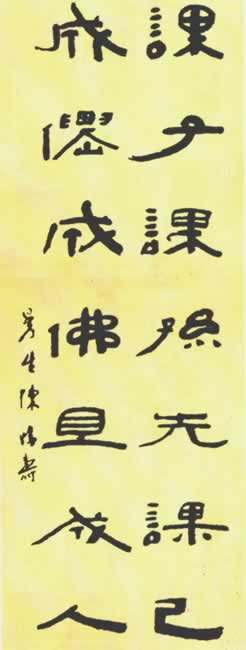 課子課孫先課己
成僊成佛且成人
曼生陳鴻壽